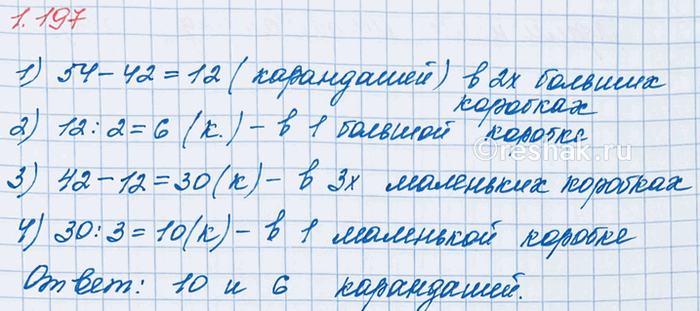 1.197
1) 54-42=12 (карандашей) в 2х больших
коробках
2) 12:2=6 (к.) - в 1 большой коробке
reshak.ru
3) 42-12=30(к) - в 3х маленьких коробках
4) 30:3=10(к) - в 1 маленькой коробке
Ответ: 10 и 6 карандашей.